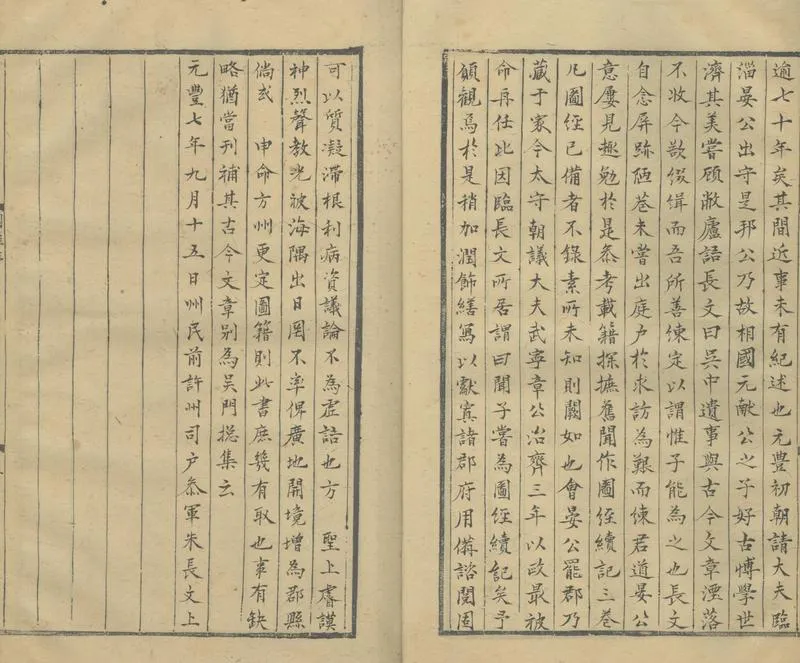 逾七十年矣其間近事未有紀述也元豐初朝請大夫臨
淄晏公出守是邦公乃故相國元献公之子好古博學世
濟其美嘗顧敝廬語長文曰吳中遺事與古今文章湮落
不收今欲綴緝而吾所善練定以謂惟子能為之也長文
自念屏跡陋巷未嘗出庭户於求訪為艱而練君道晏公
意屢見趣勉於是叅考載籍探摭舊聞作圖經續記三卷
凡圖經已備者不錄素所未知則闕如也會晏公罷郡乃
藏于家今太守朝議大夫武寧章公治齊三年以政最被
命再任比因臨長文所居謂曰聞子嘗為圖經續記矣予
頋觀焉於是稍加潤飾繕寫以獻寘諸郡府用備諮閱固
可以質凝滯根利病資議論不為虛語也方　聖上睿謨
神烈聲教光被海隅出日罔不率俾廣地開境增為郡縣
倘或　申命方州更定圖籍則此書庶幾有取也事有缺
略猶當刊補其古今文章别為吳門捴集云
元豐七年九月十五日州民前許州司户叅軍朱長文上